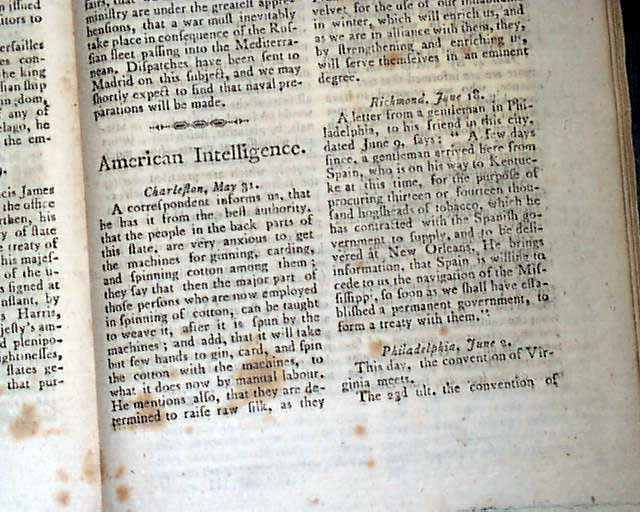 n issued
itors to
ersailles
es con-
the king
sian ship
n dom,
f any of
elago, he
the em-
9.
cis James
the office
rthen, his
y of state
treaty of
his majes-
of the u-
s signed at
nstant, by
s Harris,
jesty's am-
d plenipo-
ightinesses,
states ge-
that pur-
fairs, that
ministry are under the greatest appre-
hensions, that a war must inevitably
take place in consequence of the Rus-
sian fleet passing into the Mediterra-
nean. Dispatches have been sent to
Madrid on this subject, and we may
shortly expect to find that naval pre-
parations will be made.
American Intelligence.
Charleston, May 31.
A correspondent informs us, that
he has it from the best authority,
that the people in the back parts of
this state, are very anxious to get
the machines for ginning, carding,
and spinning cotton among them;
they say that then the major part of
those persons who are now employed
in spinning of cotton, can be taught
to weave it, after it is spun by the
machines; and add, that it will take
but few hands to gin, card, and spin
the cotton with the machines, to
what it does now by manual labour.
He mentions also, that they are de-
termined to raise raw silk, as they
velvet for the use of our
in winter, which will enrich us, and
as we are in alliance with them, they,
by strengthening and enriching us,
will serve themselves in an eminent
degree.
Richmond, June 18.
A letter from a gentleman in Phi-
ladelphia, to his friend in this city,
dated June 9, says; "A few days
since, a gentleman arrived here from
Spain, who is on his way to Kentuc-
ke at this time, for the purpose of
procuring thirteen or fourteen thou-
sand hogsheads of tobacco, which he
has contracted with the Spanish go-
vernment to supply, and to be deli-
vered at New Orleans. He brings
information, that Spain is willing to
cede to us the navigation of the Mis-
sissippi, so soon as we shall have esta-
blished a permanent government, to
form a treaty with them."
Philadelphia, June 2.
This day, the convention of Vir-
ginia meets.
The 23d ult. the convention of